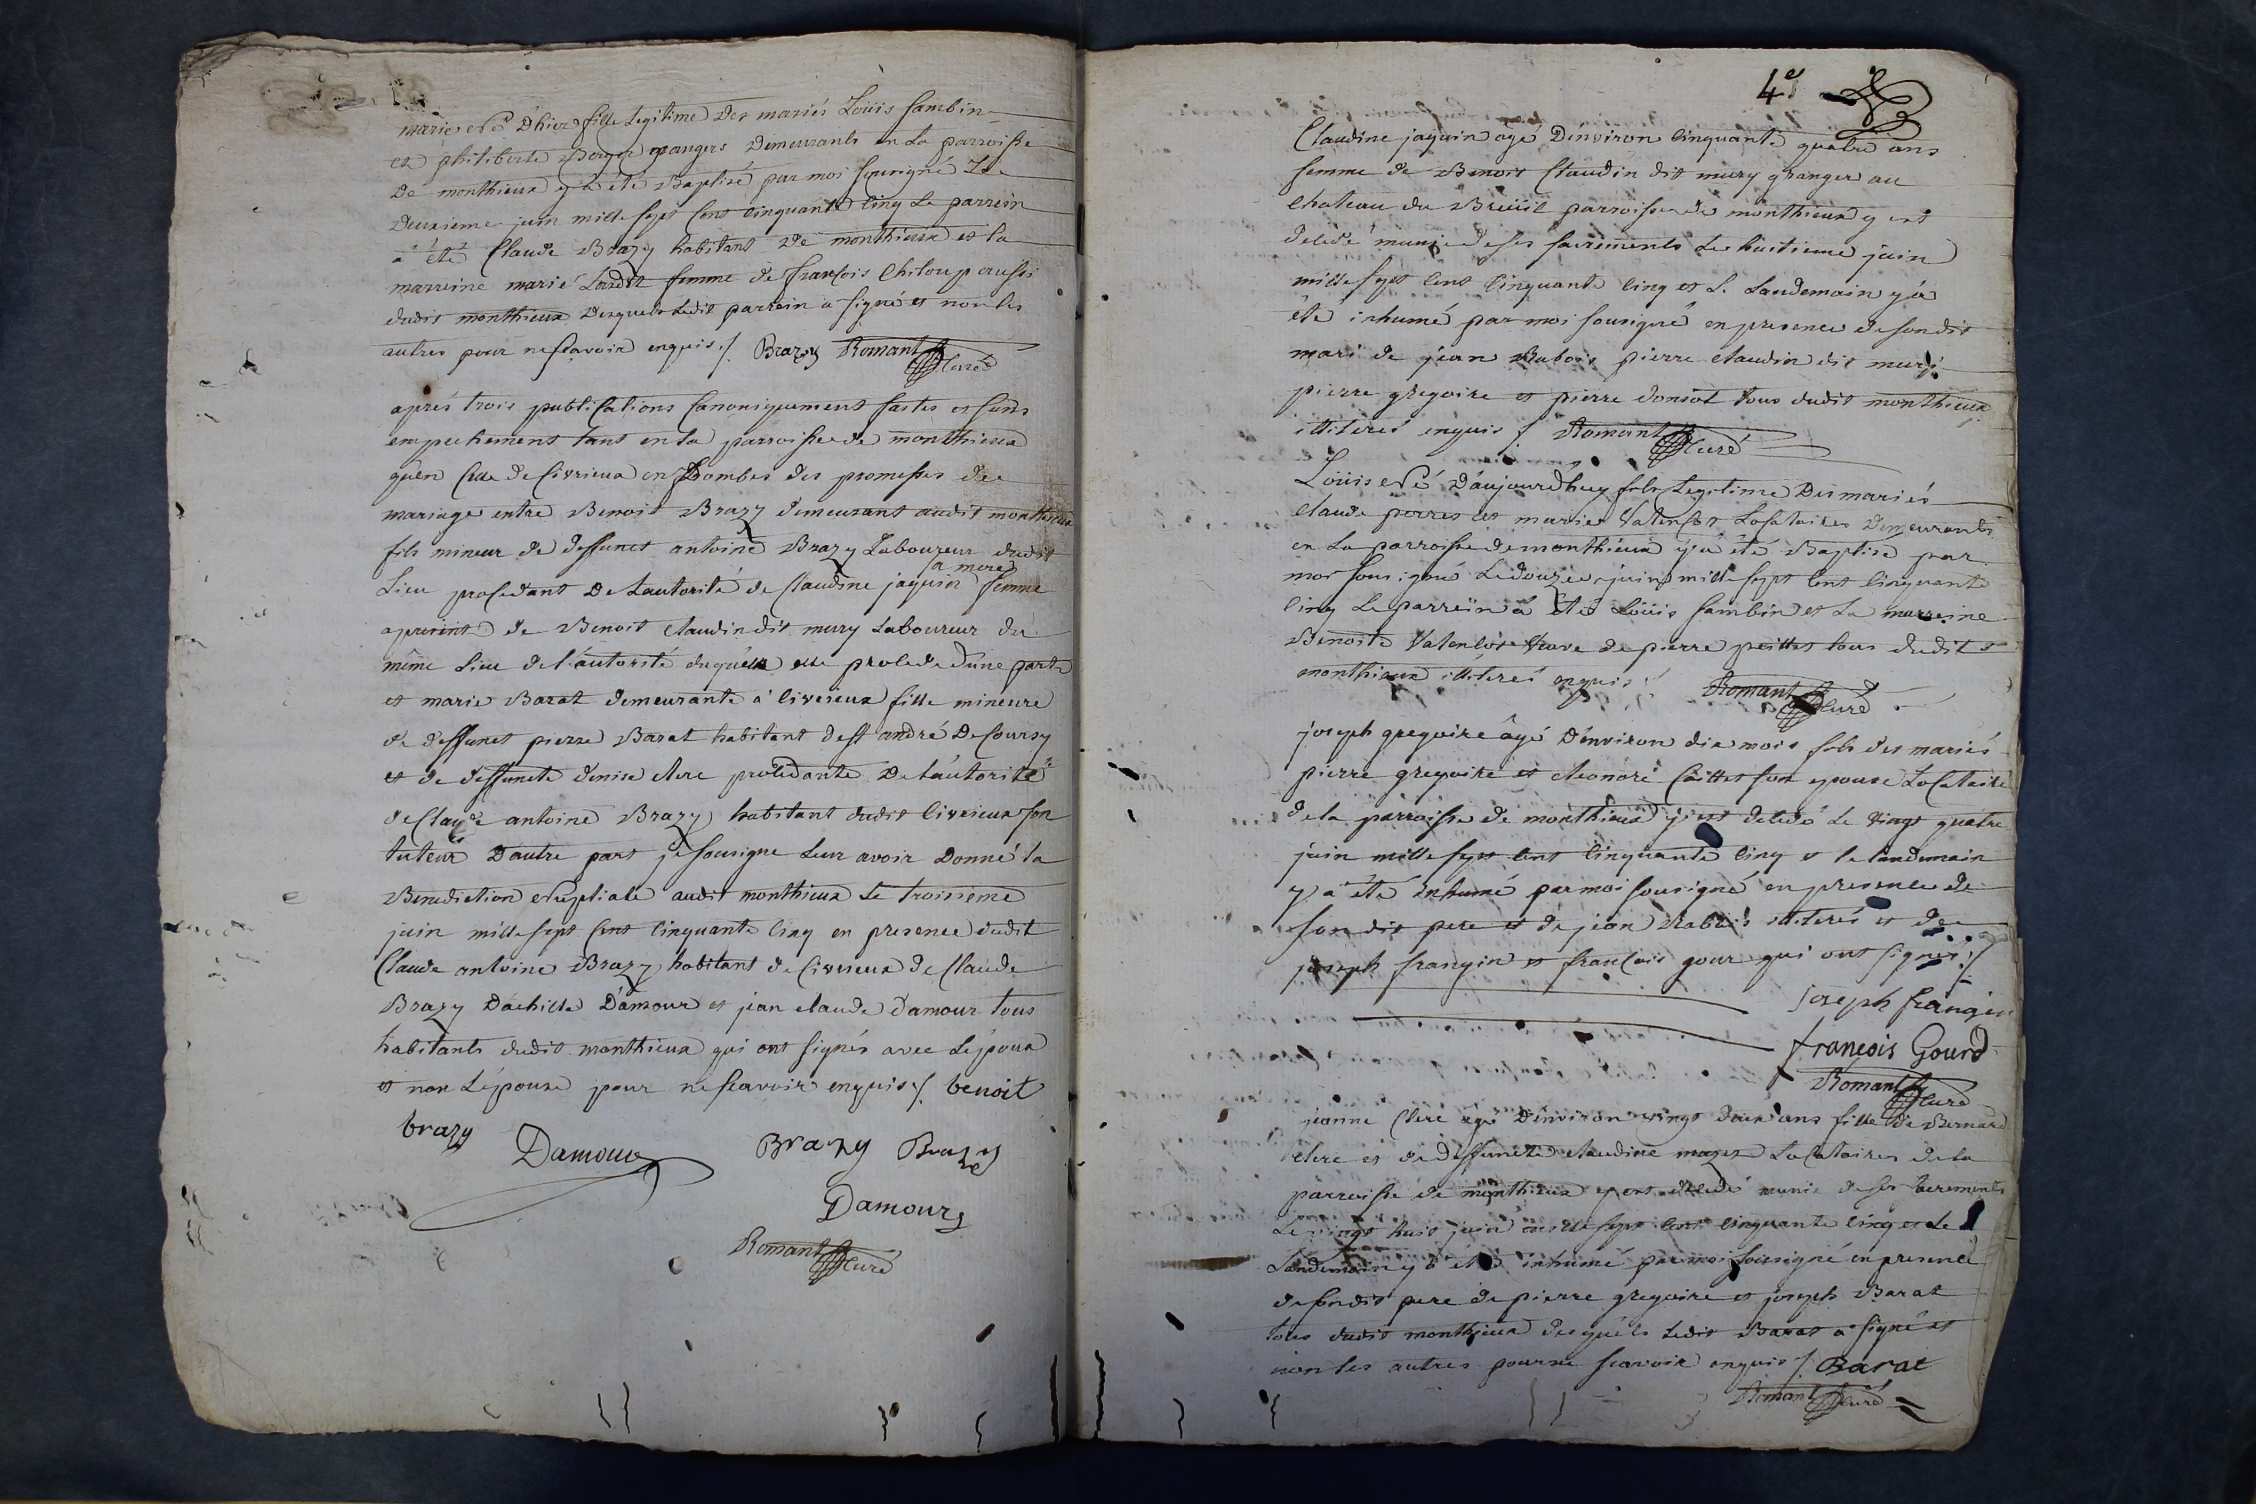 marie née d'hier fille legitime des mariés Loüis Sambin
et philiberte Berger grangers demeurants en la parroisse
de monthieux y a été Baptisé par moi sousigné Le
deuxieme juin mille sept cent cinquante cinq Le parrein
a été Claude Brazy habitant de monthieux et la
marreine marie femme de françois Chiloup aussi
dudit monthieux desquels Ledit parrein a signé et non les
autres pour ne sçavoir enquis ./. Brazy Romant Curé
aprés trois publications Canoniquement faites et sans
empechement tant en la parroisse de monthieux
qu'en Celle de Civrieux en Dombes des promesses de
mariage entre Benoit Brazy demeurant audit monthieux
fils mineur de deffunct antoine Brazy Laboureur dudit
Lieu procedant de Lautorité de Claudine jaquin sa mere femme
apresent de Benoit Claudin dit mury Laboureur du
même Lieu de l'autorité duquel elle procede d'une part
et marie Barat demeurante à Civrieux fille mineure
de deffunct pierre Barat habitant de st andré de Coursy
et de deffuncte denise clere procedante de L'autorité
de Claude antoine Brazy habitant dudit Civrieux son
tuteur d'autre part je sousigne Leur avoir donné la
Benediction Nuptiale audit monthieux Le troisieme
juin mille sept cent cinquante cinq en presence dudit
Claude antoine Brazy habitant de Civrieux de Claude
Brazy d'achille D'amour et jean claude damour tous
habitants dudit monthieux qui ont signés avec L'époux
et non L'épouse pour ne scavoir enquis ./. benoit
brazy Damour Brazy Brazy
Damour
Romant Curé
4e
Claudine jaquin agé d'environ Cinquante quatre ans
femme de Benoit Claudin dit mury granger au
Chateau du Breüil parroisse de monthieux y est
decedé munie de ses sacrements Le huitieme juin
mille sept cent cinquante cinq et L. Landemain y a
été inhumé par moi sousigné en presence de son dit
mari de jean Rabois pierre claudin dit muri
pierre gregoire et pierre donsot tous dudit monthieux
illiterés enquis ./. Romant Curé
Loüis Né d'aujourdhuy fils Legitime des mariés
claude perret et marie Valensot Locataires demeurants
en La parroisse de monthieux y a été Baptisé par
moi sousigné Le douze juin mille sept cent cinquante
cinq Le parrein à été Loüis Sambin et La marreine
Benoite Valensot veuve de pierre peittet tous dudit
monthieux illiterés enquis ./. Romant Curé
joseph gregoire âgé d'environ dix mois fils des mariés
pierre gregoire et eleonore Caittet son epouse Locataire
de la parroisse de monthieux y est decedé Le vingt quatre
juin mille sept cent cinquante cinq et le Landemain
y a été inhumé par moi sousigné en presence de
son dit pere et de jean Rabois illiterés et de
joseph frangin et francois gour qui ont signés ./.
joseph frangin
françois Gourd
Romant Curé
jeanne Clere agé d'environ vingt deux ans fille de Bernard
clere et de deffuncte claudine mazet Locataires de la
parroisse de monthieux y est decedé munie de ses sacrements
Le vingt huit juin mille sept cent cinquante cinq et Le
Landemain y a été inhumé par moi sousigné en presence
de son dit pere de pierre gregoire et joseph Barat
tous dudit monthieux desquels Ledit Barat a signé et
non les autres pour ne scavoir enquis ./. Barat
Romant Curé